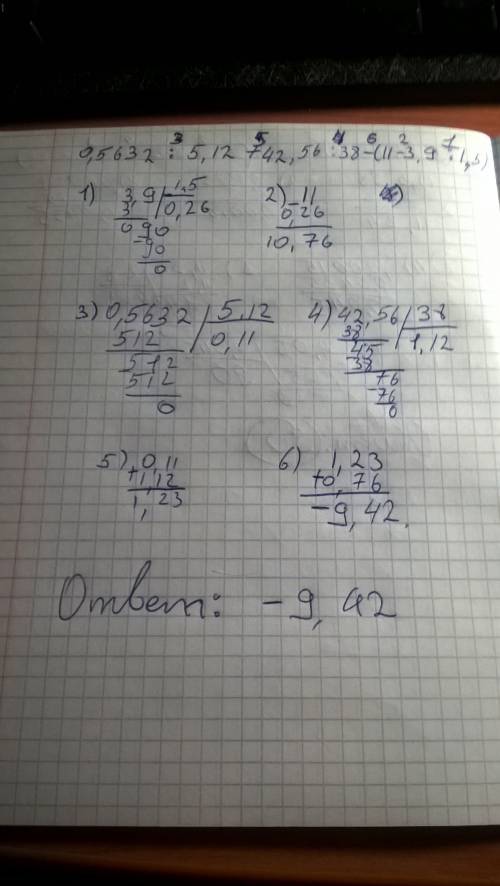 0,5632 : 5,12 + 42,56 : 38 - (11 - 3,9 : 1,5)
3 5 4 6 2 1
1) 3 9 | 1,5
3 | 0,26
0 90
- 90
0
2) - 11
0,26
10,76
3) 0,5632 | 5,12
512 | 0,11
- 512
512
0
4) 42,56 | 38
38 | 1,12
- 45
38
76
- 76
0
5) + 0,11
1,12
1,23
6) 1,23
10,76
- 9,42
Ответ: - 9,42